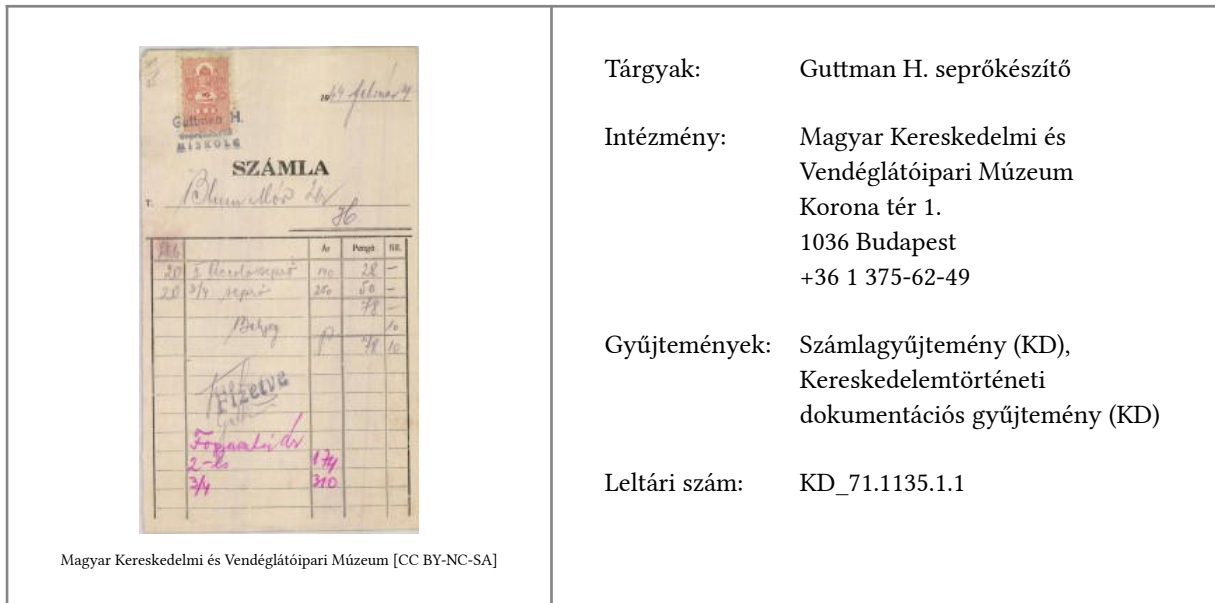 1944 február 9
Guttman H.
MISKOLC
SZÁMLA
T. Blum Mór
Ár Pengő fill.
20 28 –
20 3/4 seprő 250 50 –
78 –
Bélyeg 10
78 10
Fizetve
Fogyasztói ár
2-es 174
3/4 310
Magyar Kereskedelmi és Vendéglátóipari Múzeum [CC BY-NC-SA]
Tárgyak: Guttman H. seprőkészítő
Intézmény: Magyar Kereskedelmi és
Vendéglátóipari Múzeum
Korona tér 1.
1036 Budapest
+36 1 375-62-49
Gyűjtemények: Számlagyűjtemény (KD),
Kereskedelemtörténeti
dokumentációs gyűjtemény (KD)
Leltári szám: KD_71.1135.1.1